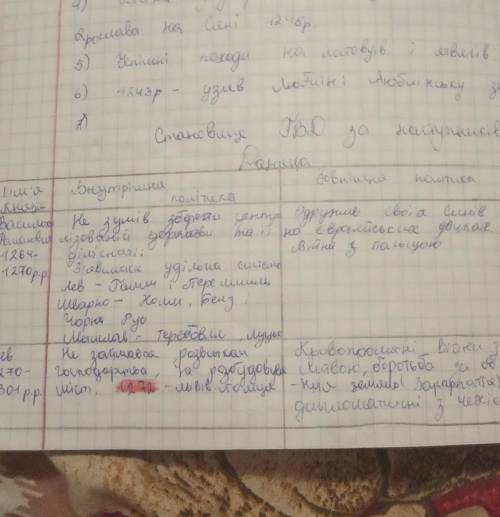 4)
Ярослава на Сяні 1245р.
5) Успішні походи на литовців і ятвягів
6) 1243р - узяв Люблін і Люблінську
7)
Становище ГВД за наступників
Данила
Ім'я князя
Внутрішня політика
Зовнішня політика
Василько Романович 1264-1270р.р.
Не зумів зберегти центра
лізованій держави та її
цілісності.
Зявилася удільна система
Лев - Галич і Перемишль
Шварно - Холм, Белз
Чорна Русь
Мстислав - Теребовля, Луцьк
Одружив своїх синів
на європейських
Війна з Польщею
270-
301р.р.
Не займався розвитком
господарства, та розбудовою
міст. 1272 - Львів столиця
Кровопролитні війни з
Литвою, боротьба за об
-ння земель (Закарпаття)
дипломатичні з